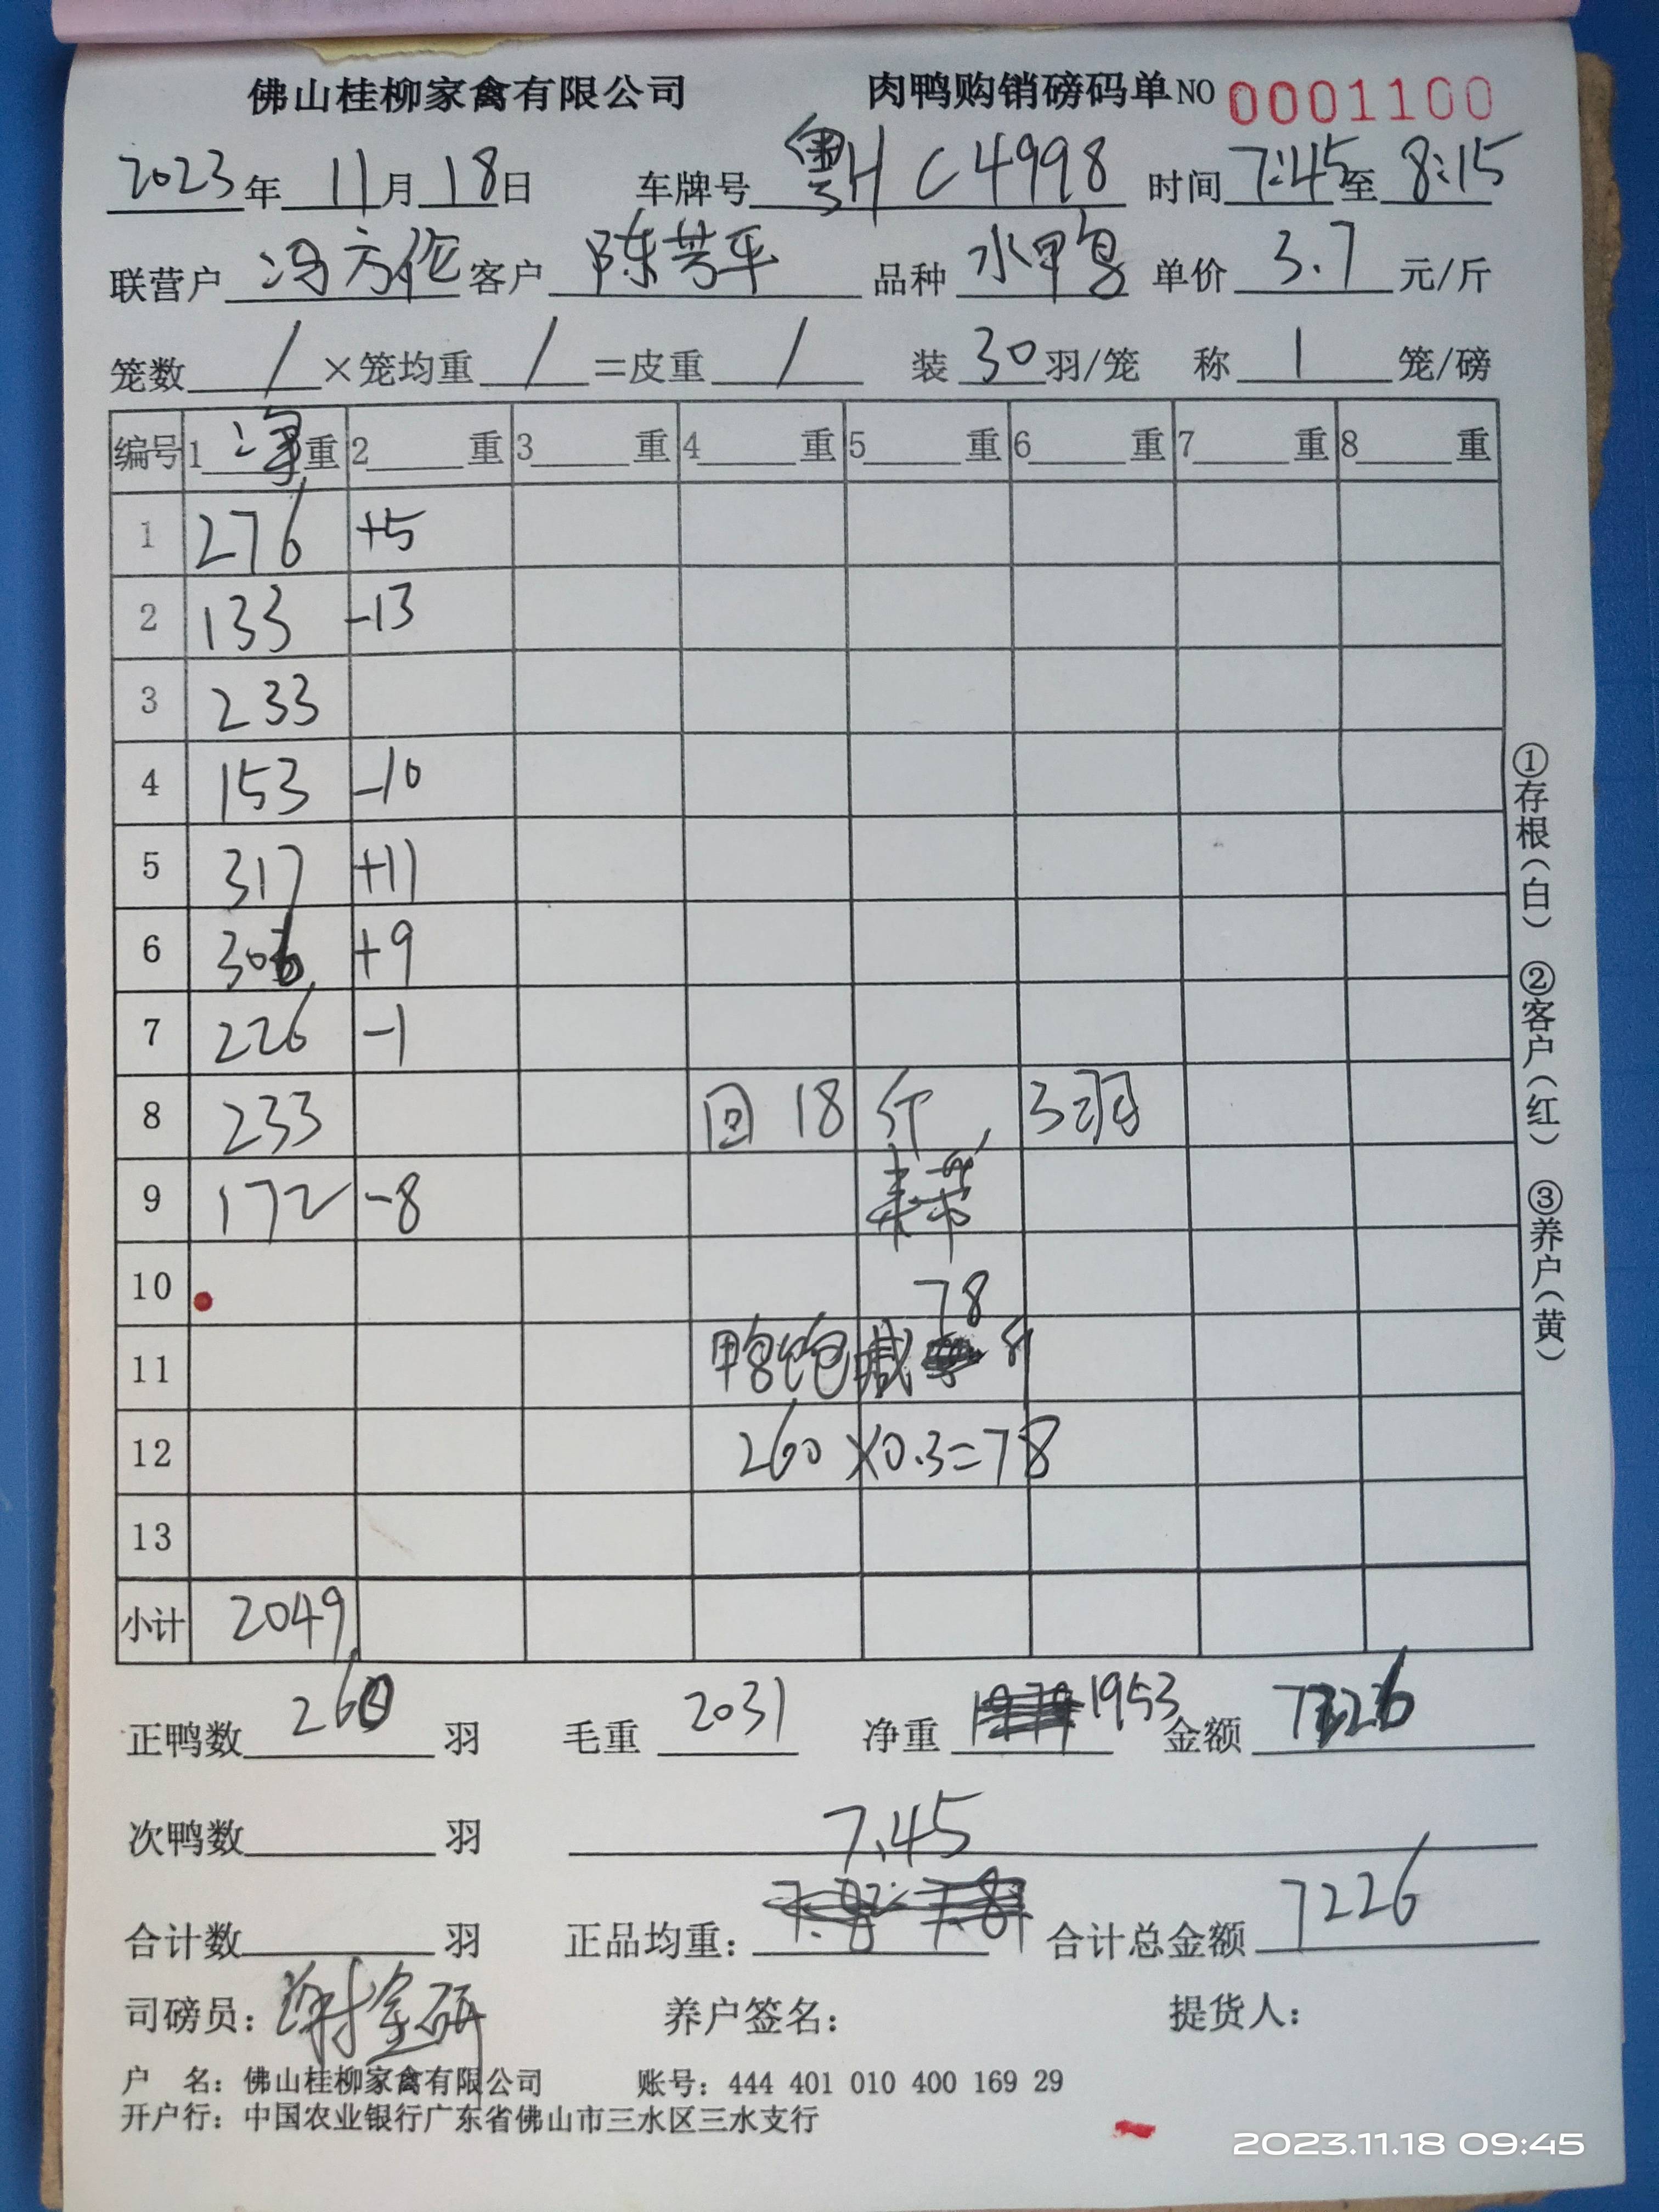 佛山桂柳家禽有限公司 肉鸭购销磅码单 NO 0001100
2023年 11月 18日 车牌号 粤H C4998 时间 7:45至 8:15
联营户 冯方伦 客户 陈芳平 品种 水鸭 单价 3.7 元/斤
笼数 / ×笼均重 / =皮重 / 装 30 羽/笼 称 1 笼/磅
编号 1 净 重 2 重 3 重 4 重 5 重 6 重 7 重 8 重
1 276 +5
2 133 -13
3 233
4 153 -10
5 317 +11
6 306 +9
7 226 -1
8 233 回 18 斤, 3羽
9 172 -8
10 78
11 鸭饱减 斤
12 260×0.3=78
13
小计 2049
正鸭数 260 羽 毛重 2031 净重 1953 金额 7226
次鸭数 羽 7.45
合计数 羽 正品均重: 合计总金额 7226
司磅员: 谢金研 养户签名: 提货人:
户 名: 佛山桂柳家禽有限公司 账号: 444 401 010 400 169 29
开户行: 中国农业银行广东省佛山市三水区三水支行
①存根(白) ②客户(红) ③养户(黄)
2023.11.18 09:45